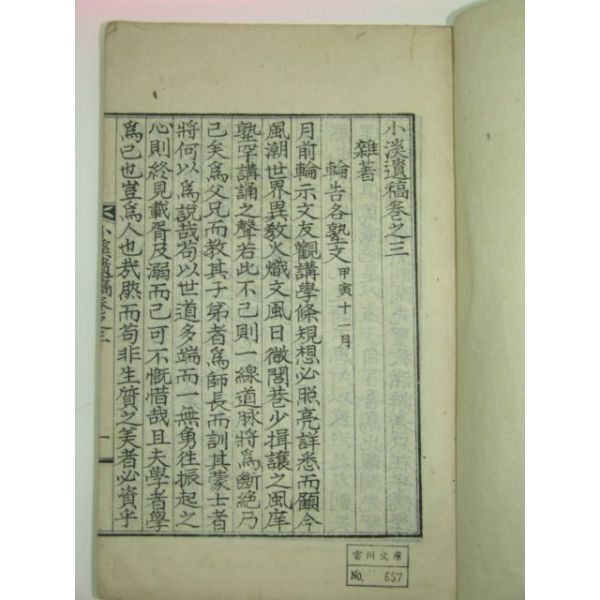 小溪遺稿卷之三
雜著
輪告各塾文 甲寅十一月
月前輪示文友觀講學條規想必照亮詳悉而顧今
風潮世界異敎火熾文風日微閭巷少揖讓之風庠
塾罕講誦之聲若此不已則一線道脉將爲斷絶乃
已矣爲父兄而敎其子弟者爲師長而訓其蒙士者
將何以爲說哉苟以世道多端而一無勇徃振起之
心則終見載胥及溺而已可不慨惜哉且夫學者學
爲己也豈爲人也哉然而苟非生質之美者必資乎
小溪遺稿卷之三
一
雲川文庫
No. 657